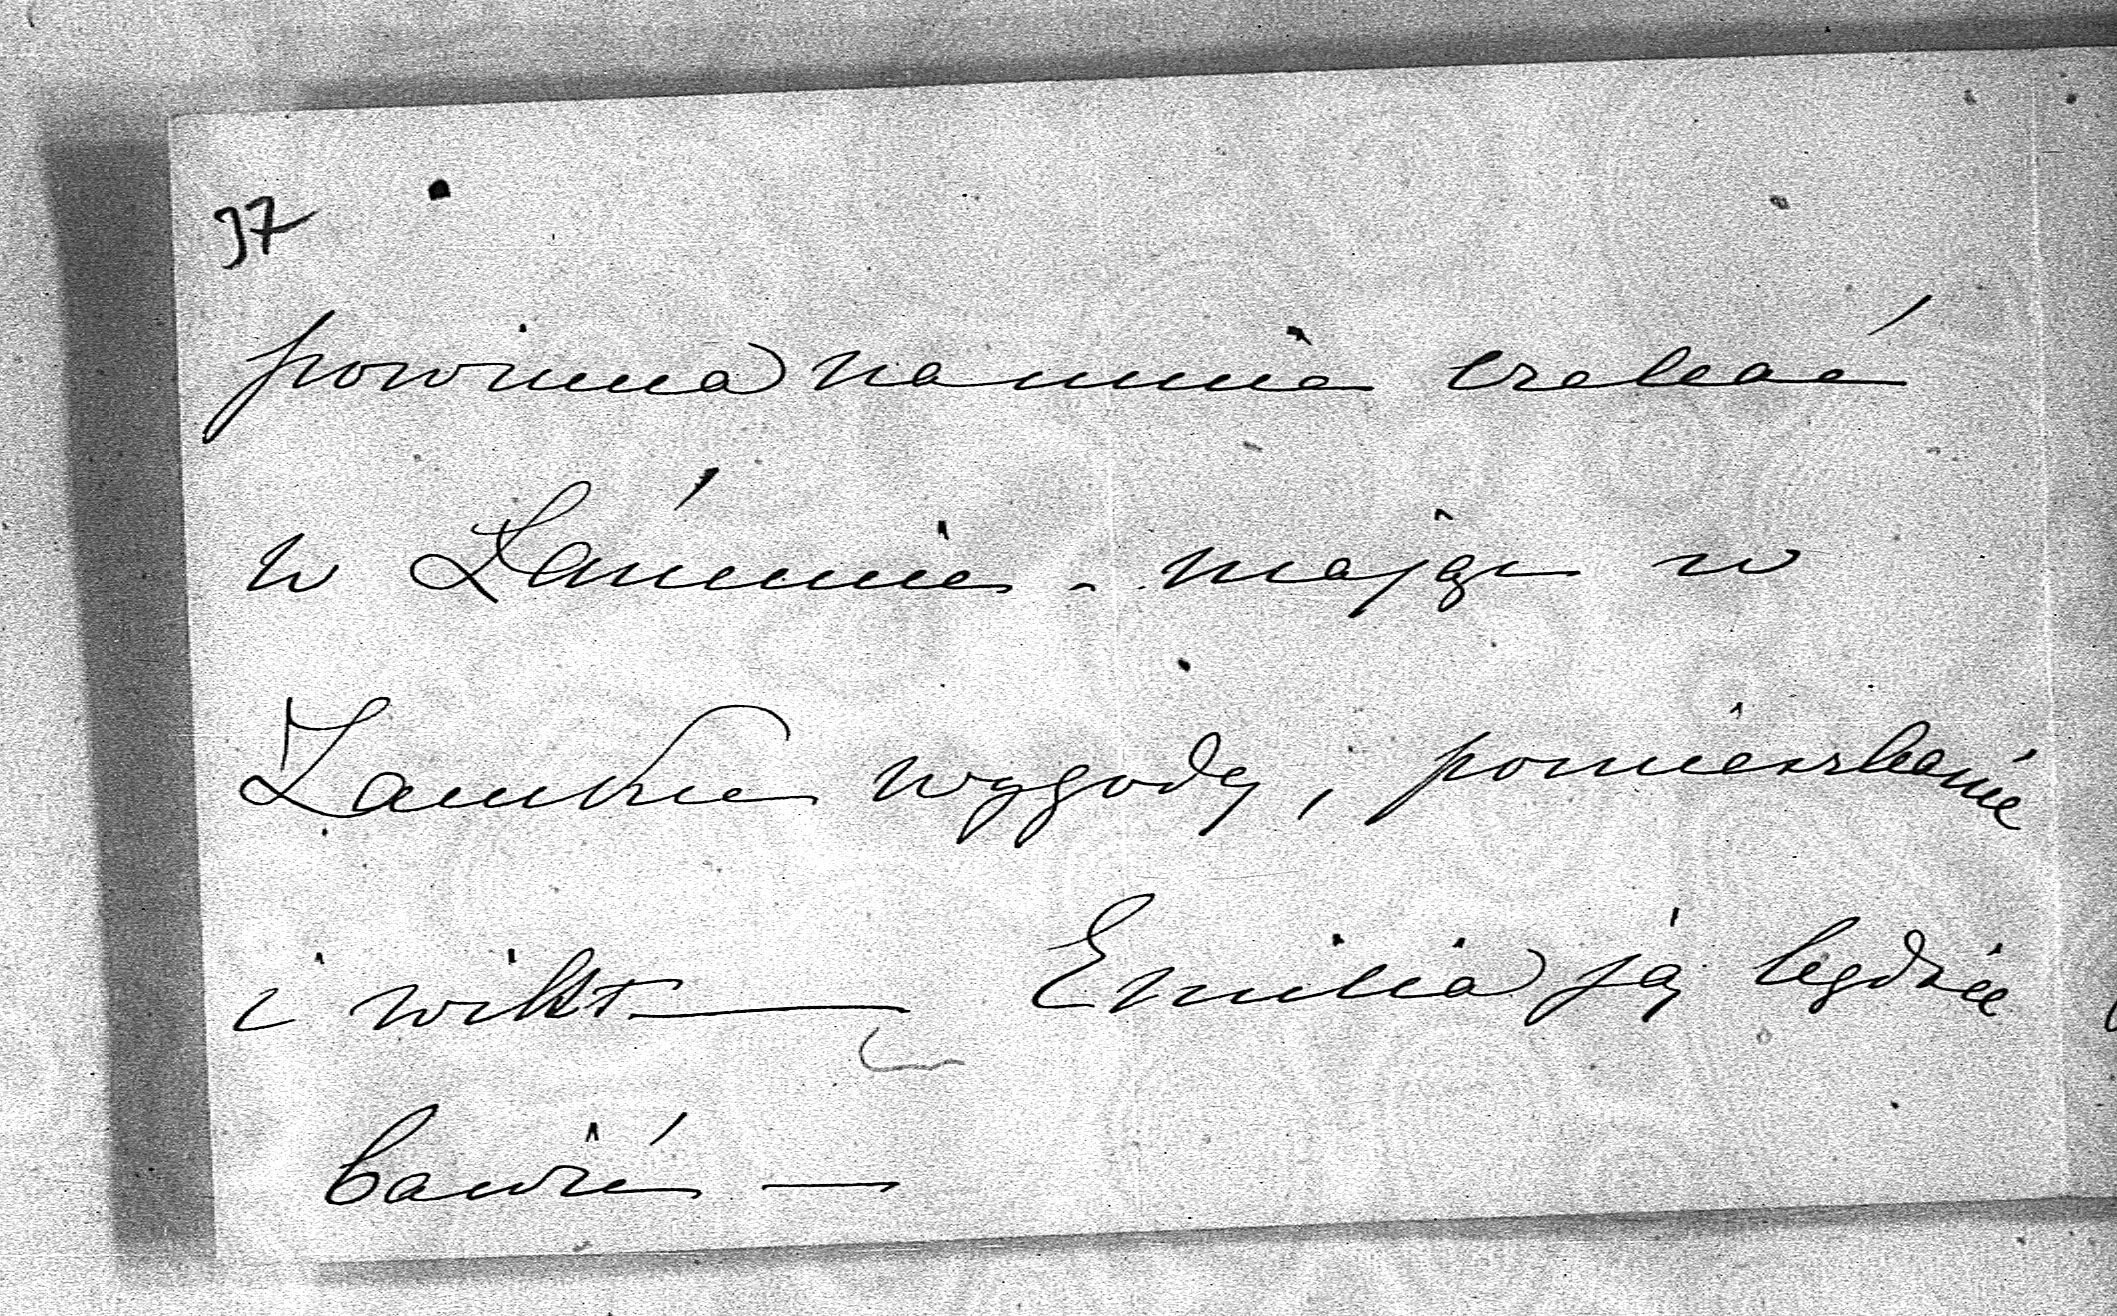 37
powinna na mnie czekać
w Łańcucie - mając w
Zamku wygody, pomieszkanie
i wikt — Emilia ją będzie
bawić —